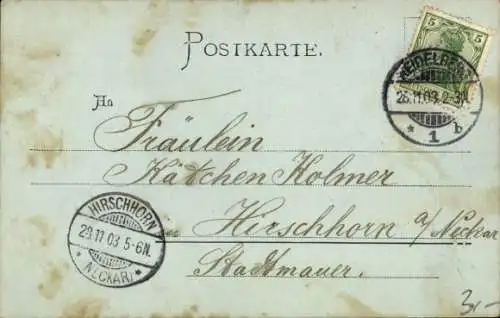 POSTKARTE.
5 5
HEIDELBERG
26.11.03, 2-3N.
* 1 b
An
Fräulein
Kätchen Holmer
Hirschhorn a/Neckar
Stadtmauer.
HIRSCHHORN
29.11.03 5-6N.
* (NECKAR) *
3,-